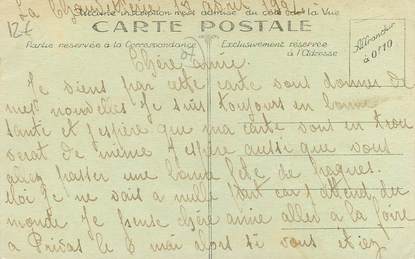 La
12 avril
Aucune inscription n'est admise au côté de la Vue
12€
CARTE POSTALE
Partie réservée à la Correspondance
Exclusivement réservée à l'Adresse
Affranchir à 0f10
Chère amie.
Je viens par cette carte vous donner de
mes nouvelles Je suis toujours en bonne
santé et j'espère que ma carte vous en trou
verat de même J espère aussi que vous
allez passer une bonne fête de paques.
Moi Je ne vais a nulle part car j attend du
monde Je pense chère amie aller a la foire
a Privas le 8 mai alors si vous etiez